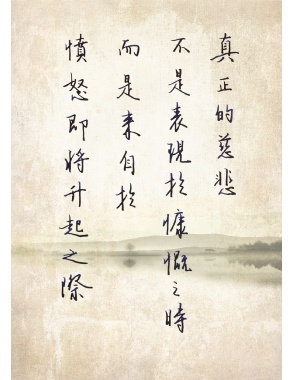 真正的慈悲
不是表現於慷慨之時
而是來自於
憤怒即將升起之際